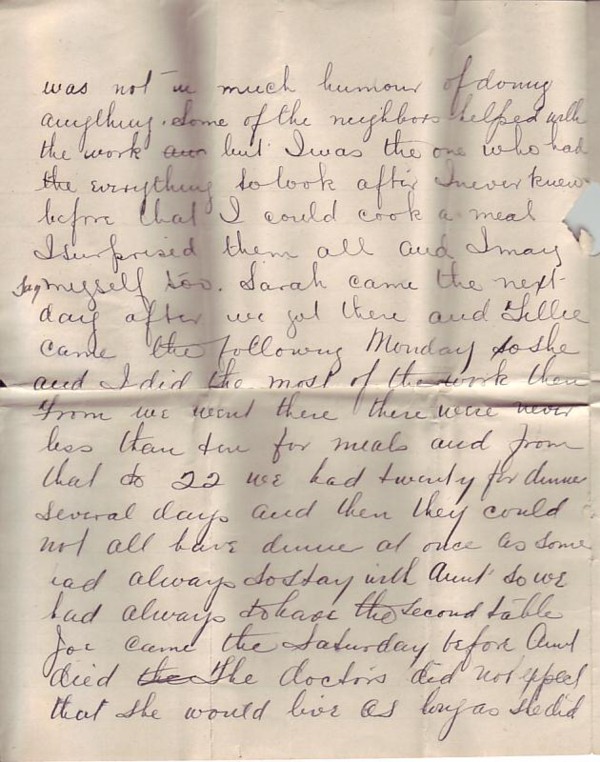 was not in much humour of doing
anything. Some of the neighbors helped with
the work but I was the one who had
the everything to look after I never knew
before that I could cook a meal
I surprised them all and I may
say myself too. Sarah came the next
day after we got there and Tillie
came the following Monday so she
and I did the most of the work then
From we went there there were never
less than ten for meals and from
that to 22 we had twenty for dinner
several days and then they could
not all have dinner at once as some
had always to stay with Aunt so we
had always to have the second table
Joe came the Saturday before Aunt
died the The doctors did not expect
that she would live as long as she did